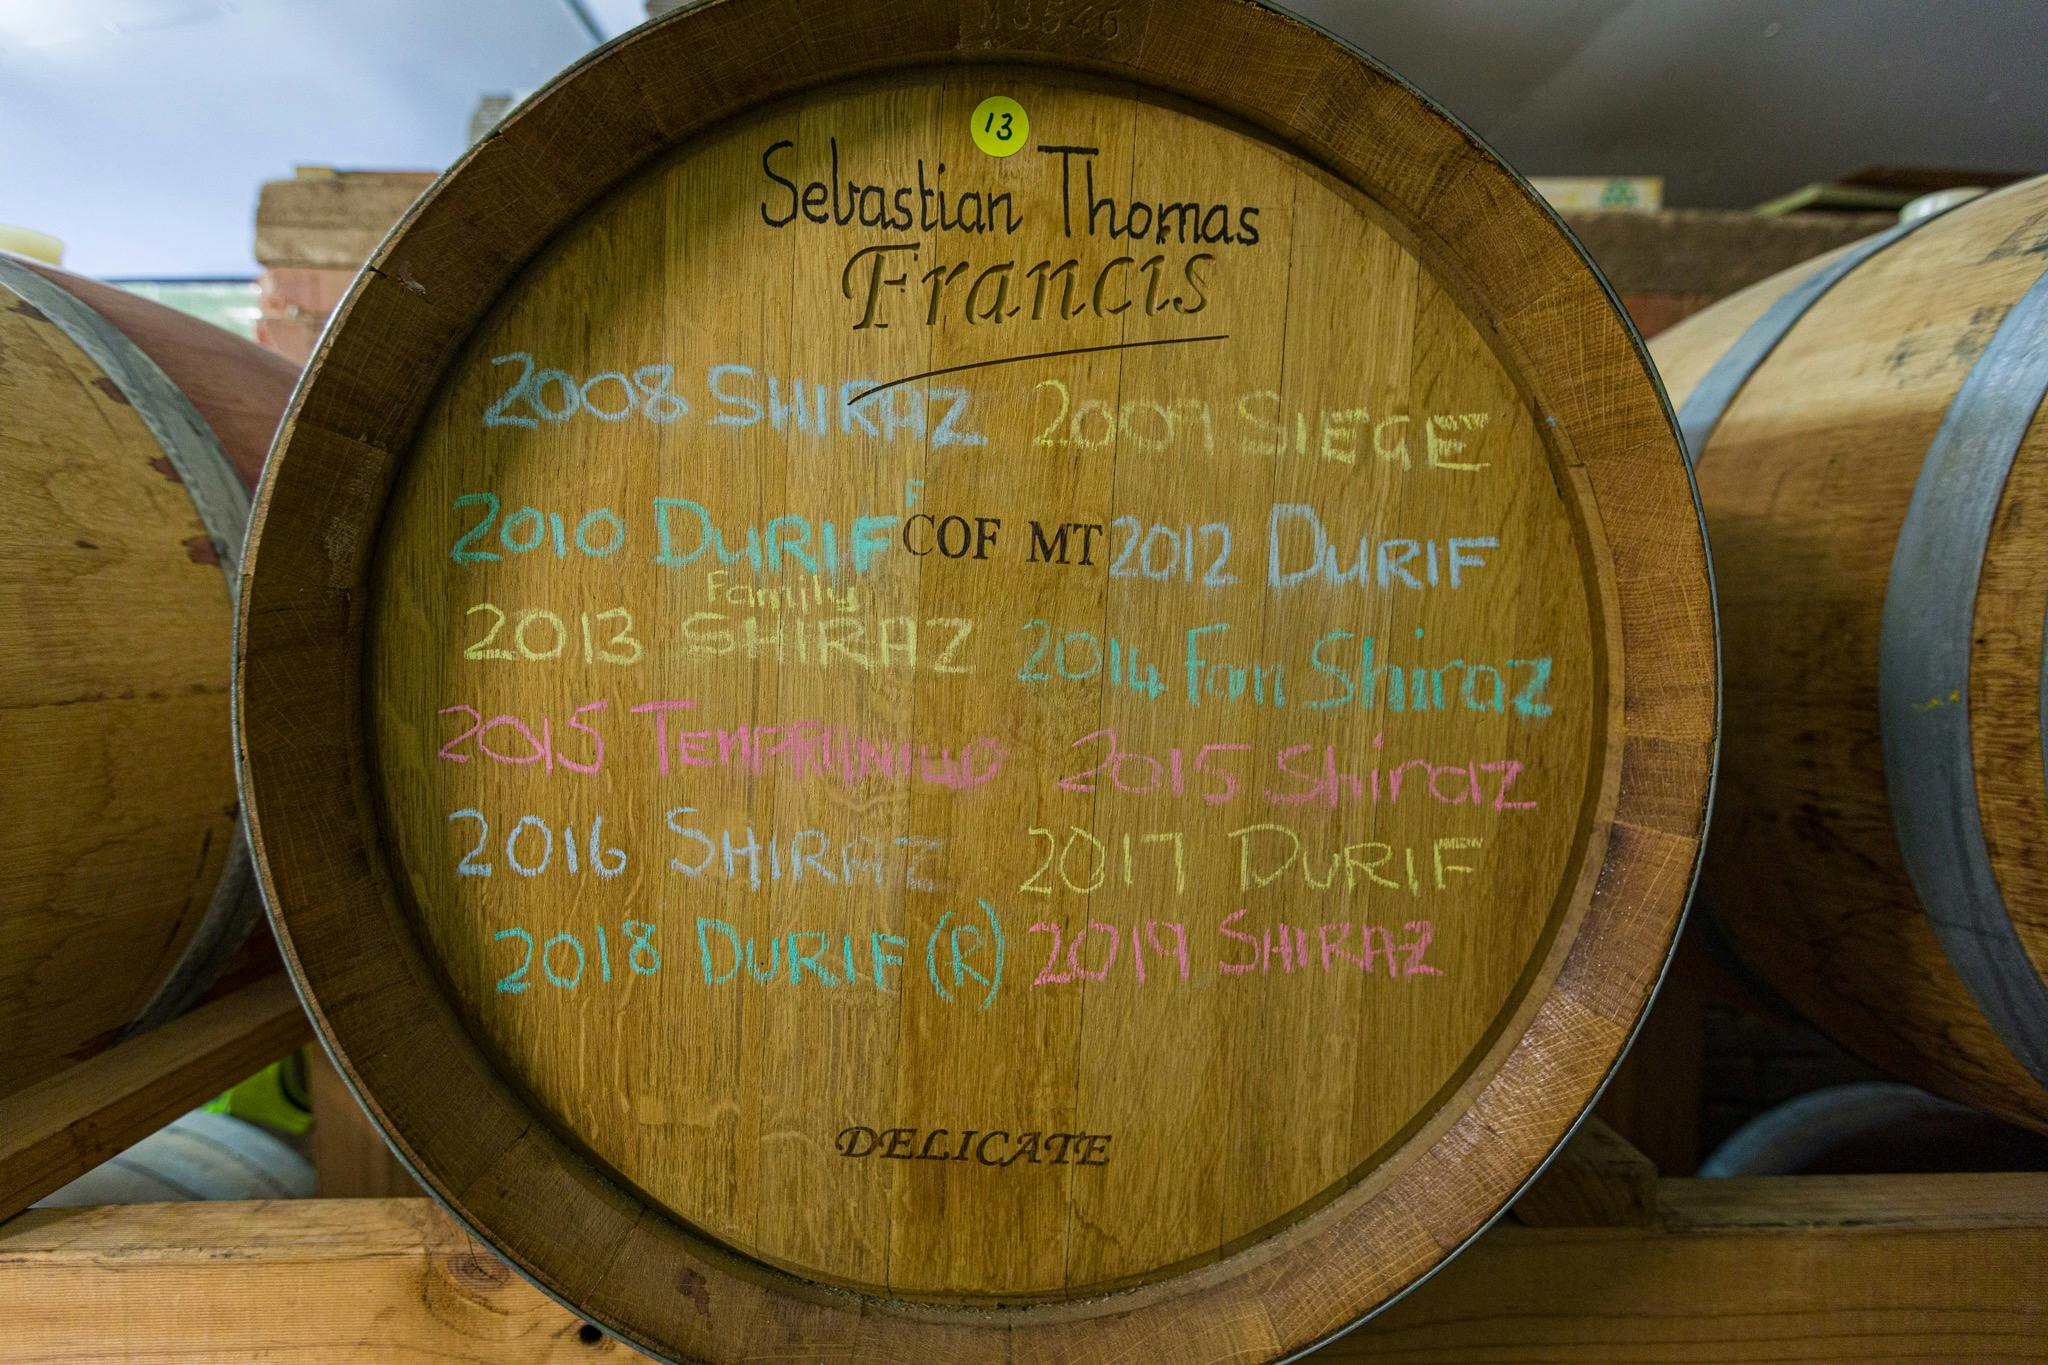 M3546
13
Sebastian Thomas
Francis
2008 SHIRAZ 2009 SIEGE
F
2010 DURIF COF MT 2012 DURIF
Family
2013 SHIRAZ 2014 Fam Shiraz
2015 TEMPRANILLO 2015 Shiraz
2016 SHIRAZ 2017 DURIF
2018 DURIF (R) 2019 SHIRAZ
DELICATE